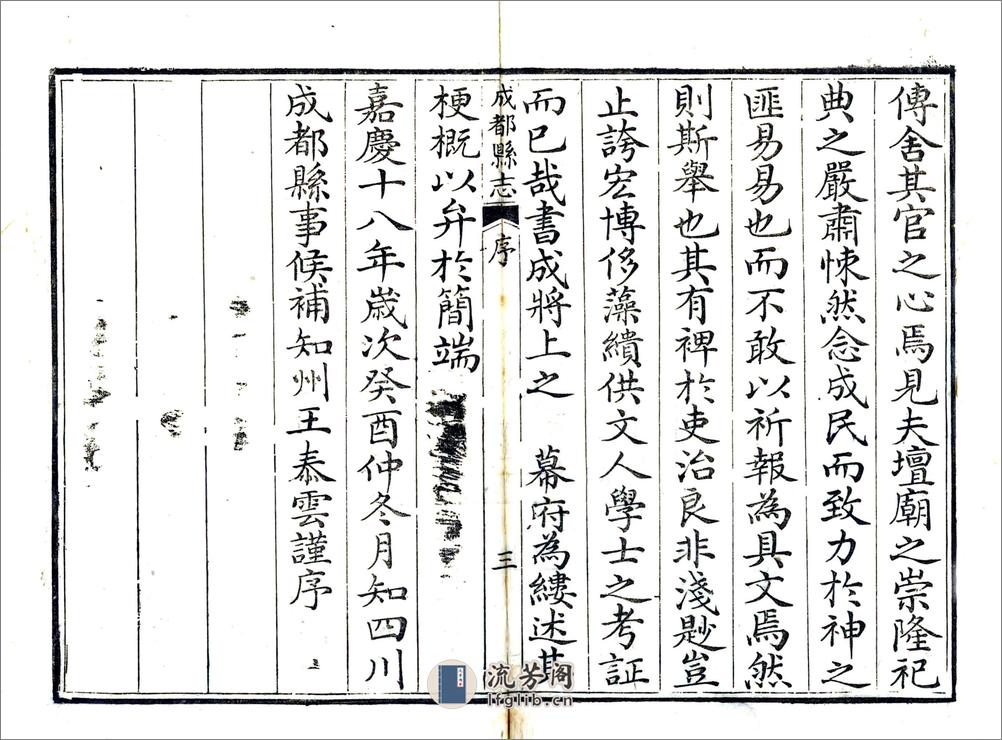 傳舍其官之心焉見夫壇廟之崇隆祀
典之嚴肅悚然念成民而致力於神之
匪易易也而不敢以祈報為具文焉然
則斯舉也其有裨於吏治良非淺尟豈
止誇宏博侈藻繢供文人學士之考証
而已哉書成將上之　幕府為縷述其
成都縣志　序　三
梗概以弁於簡端
嘉慶十八年歲次癸酉仲冬月知四川
成都縣事候補知州王泰雲謹序
流芳阁
lfglib.cn